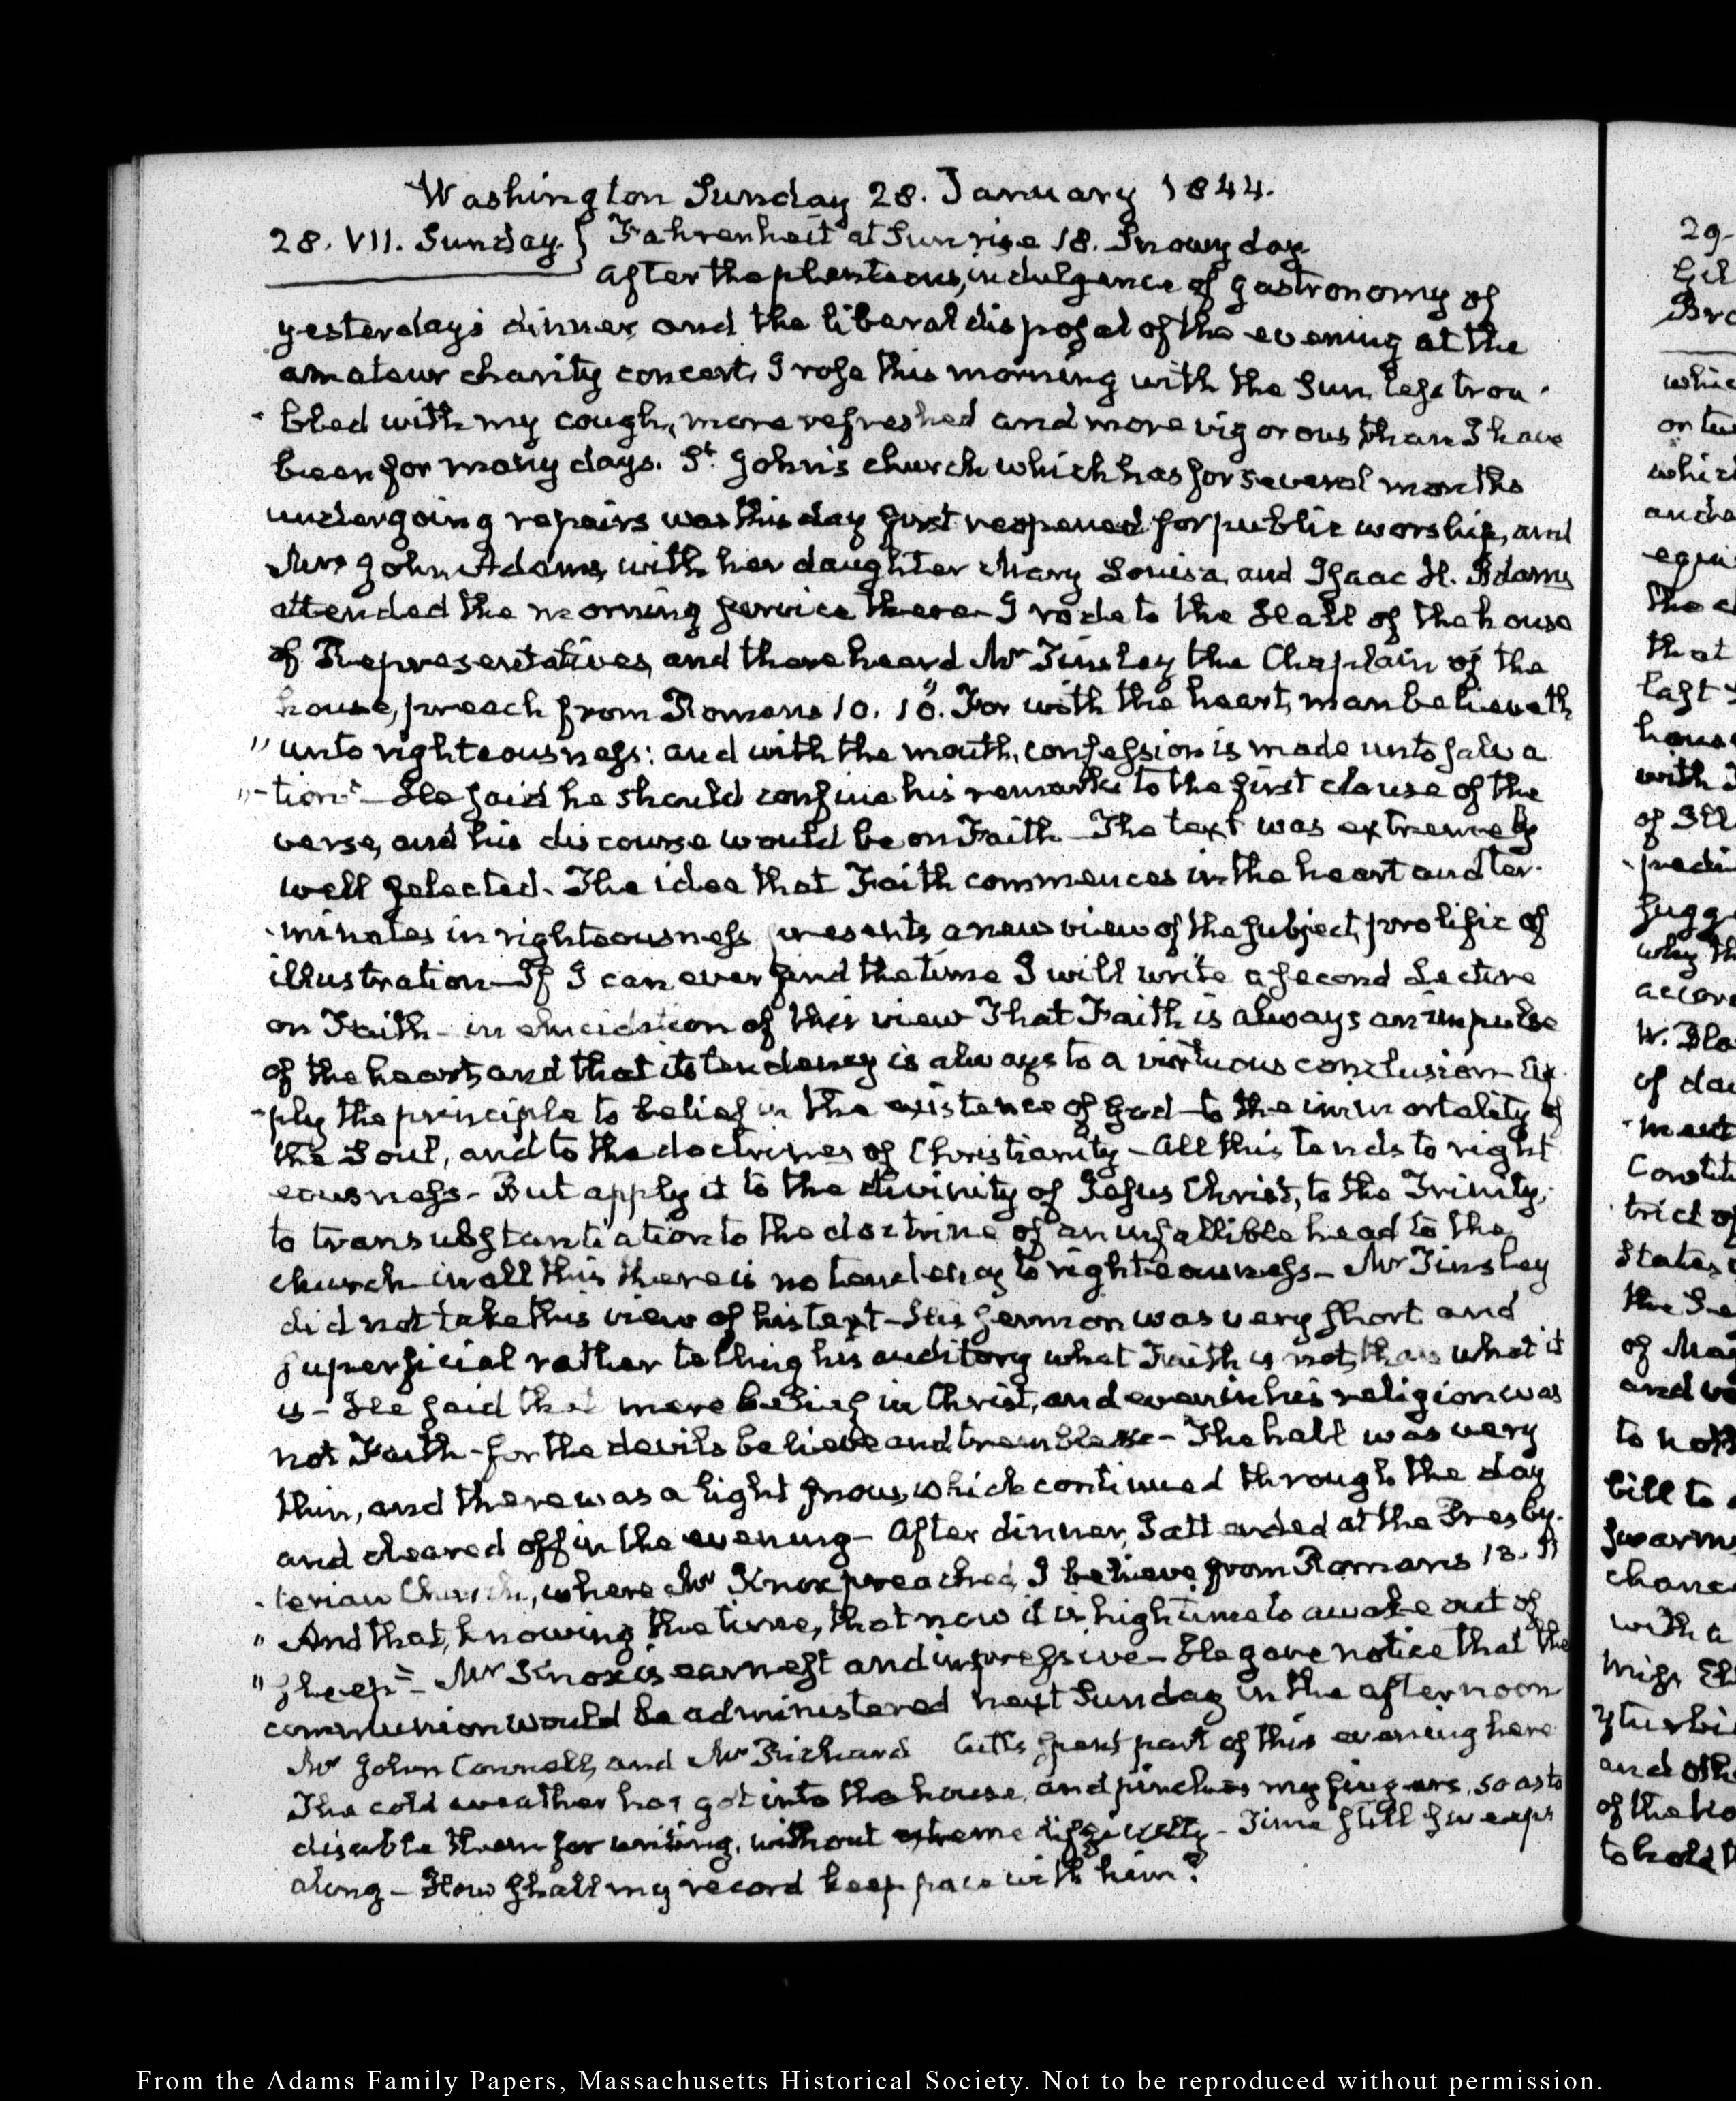 Washington Sunday 28. January 1844.
28. VII. Sunday } Fahrenheit at Sunrise 18. Snowy day
After the plenteous, indulgence of gastronomy of
yesterday's dinner and the liberal disposal of the evening at the
amateur charity concert, I rose this morning with the Sun, less trou-
-bled with my cough, more refreshed and more vigorous than I have
been for many days. St. John's church which has for several months
undergoing repairs was this day first reopened for public worship, and
Mrs John Adams, with her daughter Mary Louisa, and Isaac H. Adams
attended the morning service there- I rode to the Hall of the house
of Representatives, and there heard Mr Tinsley the Chaplain of the
house, preach from Romans 10. 10. "For with the heart, man believeth
"unto righteousness: and with the mouth, confession is made unto salva
"-tion"- He said he should confine his remarks to the first clause of the
verse, and his discourse would be on Faith- The text was extremely
well selected. The idea that Faith commences in the heart and ter-
-minates in righteousness presents a new view of the subject, prolific of
illustration- If I can ever find the time I will write a second Lecture
on Faith- in elucidation of this view That Faith is always an impulse
of the heart, and that its tendency is always to a virtuous conclusion- Ap-
-ply the principle to belief in the existence of God- to the immortality of
the Soul, and to the doctrines of Christianity- All this tends to right
eousness- But apply it to the divinity of Jesus Christ, to the Trinity,
to transubstantiation to the doctrine of an infallible head to the
church- in all this there is no tendency to righteousness- Mr Tinsley
did not take this view of his text- His sermon was very short and
superficial rather telling his auditory what Faith is not, than what it
is- He said that mere belief in Christ, and even in his religion was
not Faith- for the devils believe and tremble- The hall was very
thin, and there was a light snow, which continued through the day
and cleared off in the evening- After dinner, I attended at the Presby-
-terian Church, where Mr Knox preached, I believe from Romans 13. 11
"And that, knowing the time, that now it is high time to awake out of
"sleep"- Mr Knox is earnest and impressive- He gave notice that the
communion would be administered next Sunday in the afternoon
Mr John Connell, and Mr Richard Cutts spent part of this evening here
The cold weather has got into the house, and pinches my fingers, so as to
disable them for writing, without extreme difficulty- Time still sweeps
along- How shall my record keep pace with him?
29-
which
on
which
equi
the
that
last
house
with
of
why th
accor
of
Constit
trict of
States
of
to
bill to
swarm
chanc
with a
Miss
and oth
of the
to hold
From the Adams Family Papers, Massachusetts Historical Society. Not to be reproduced without permission.